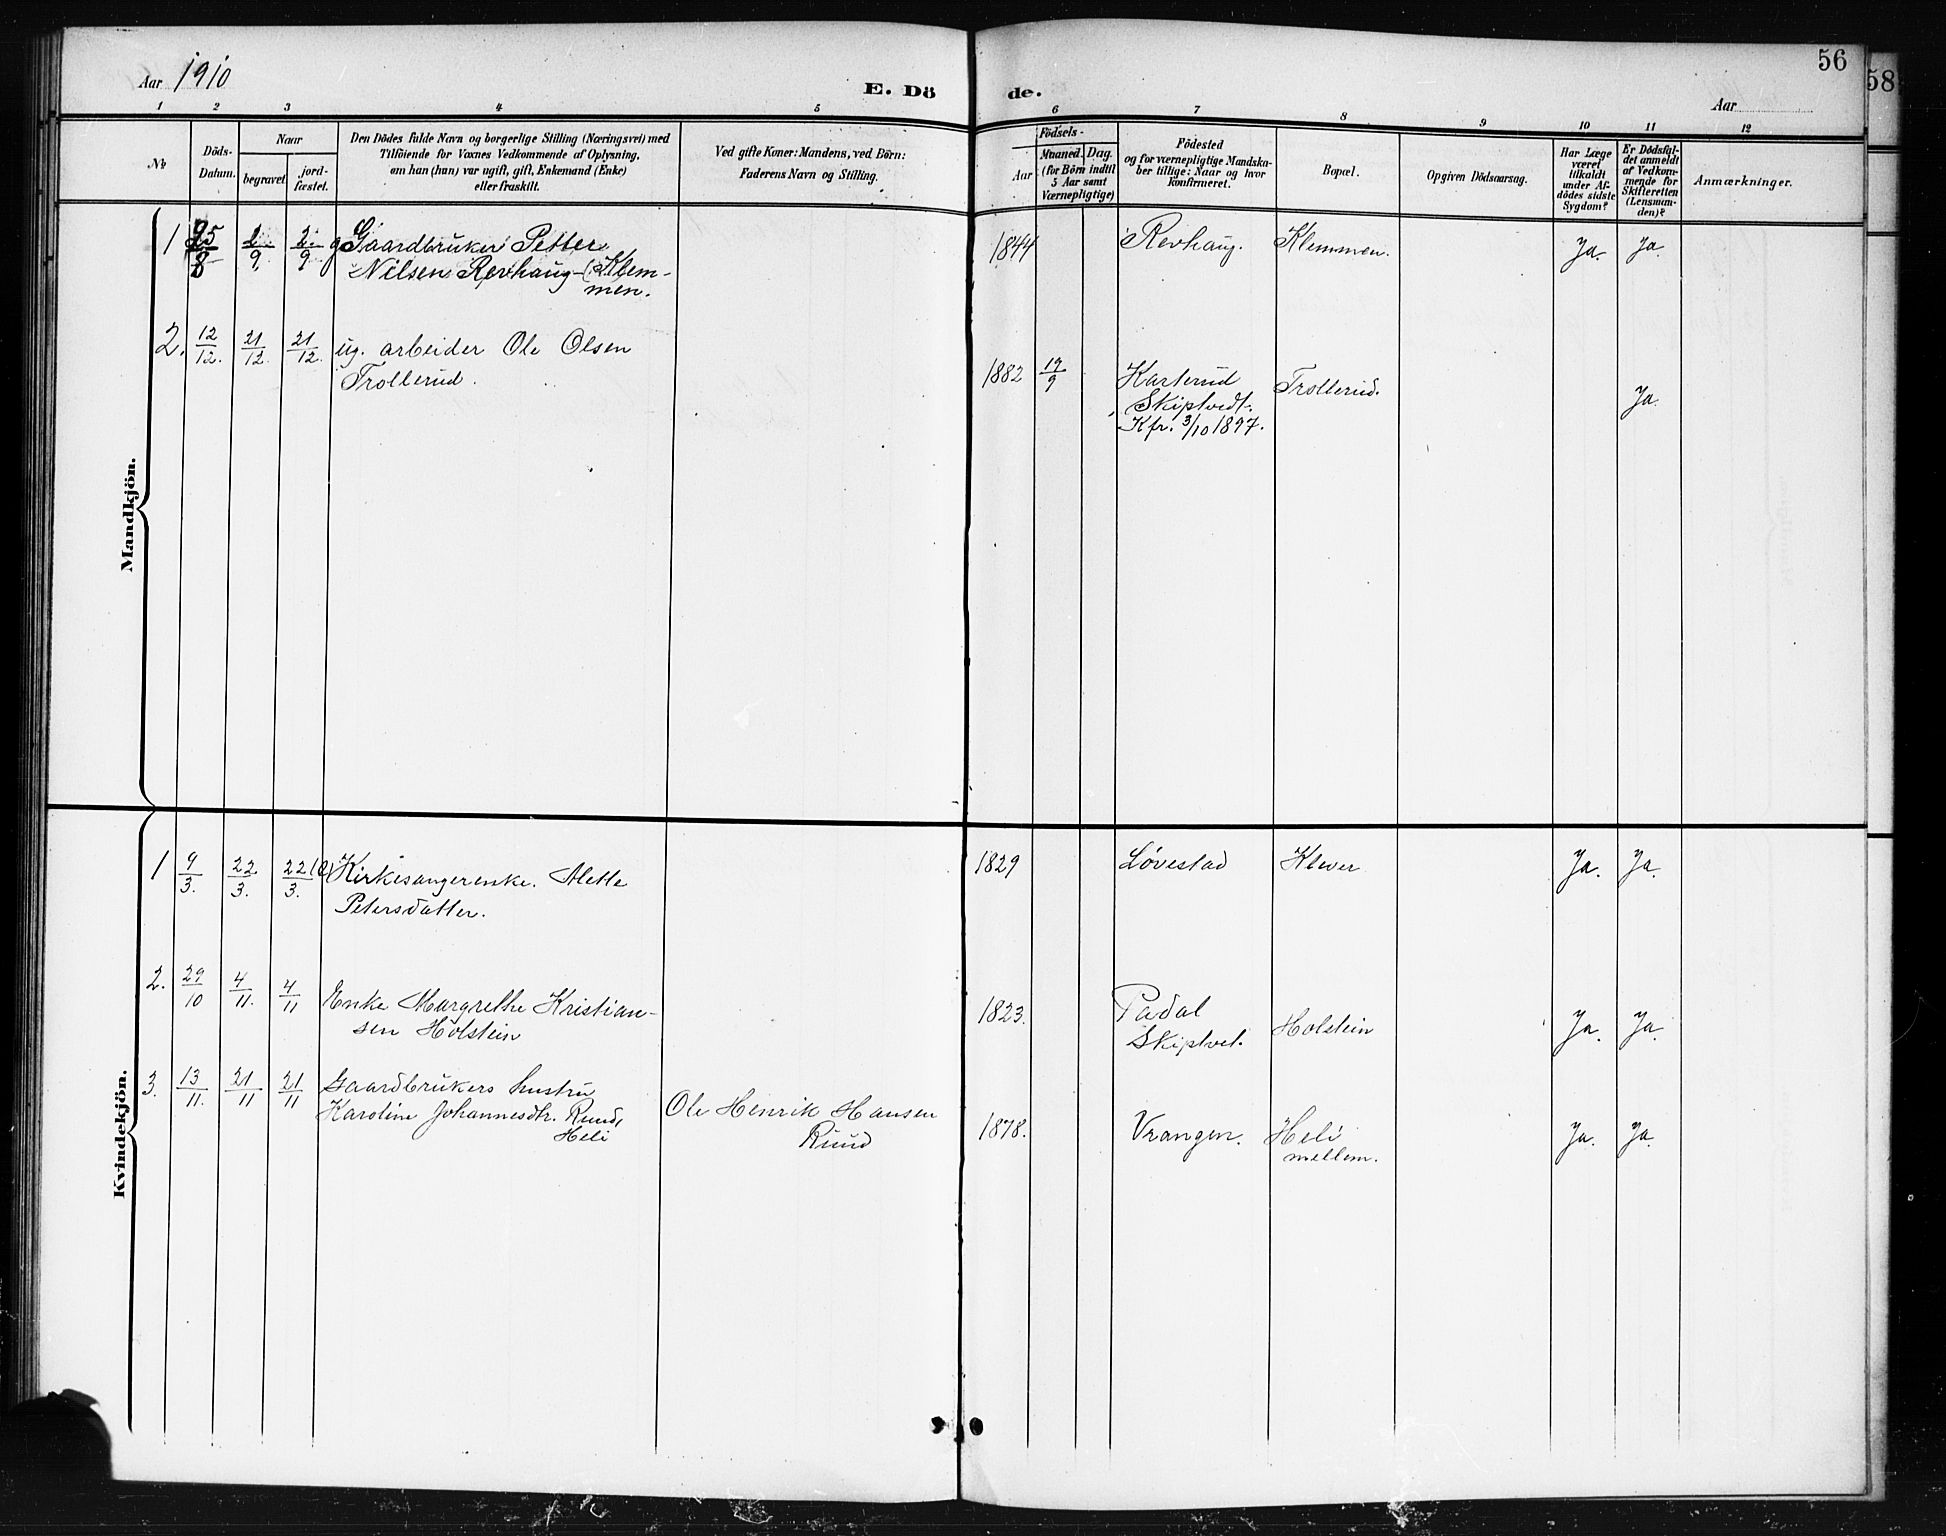 Aar 1910
E. Dö de.
56
58
Aar
1 2 3 4 5 6 7 8 9 10 11 12
No
Döds-Datum.
Naar
begravet
jord-fæstet.
Den Dödes fulde Navn og borgerlige Stilling (Næringsvei) med
Tilföiende for Voxnes Vedkommende af Oplysning,
om han (hun) var ugift, gift, Enkemand (Enke)
eller fraskilt.
Ved gifte Koner: Mandens, ved Börn:
Faderens Navn og Stilling.
Födsels-
Aar
Maaned. Dag.
(for Börn indtil
5 Aar samt
Værnepligtige)
Födested
og for værnepligtige Mandska-
ber tillige: Naar og hvor
konfirmeret.
Bopæl.
Opgiven Dödsaarsag.
Har Læge
været
tilkaldt
under Af-
dödes sidste
Sygdom?
Er Dödsfal-
det anmeldt
af Vedkom-
mende for
Skifteretten
(Lensman-
den)?
Anmærkninger.
Mandkjön.
1 25/8 2/9 2/9 g Gaardbruker Petter 1844 Revhaug. Klemmen. Ja. Ja.
Nilsen Revhaug-(Klem-
men.
2. 12/12. 21/12. 21/12. ug. arbeider Ole Olsen
Trollerud.
1882 19/9 Karterud Trollerud. Ja.
Skiptvedt.
Kfr. 3/10 1897.
Kvindekjön.
1 9/3. 22/3. 22/3. Kirkesangerenke. Alette 1829 Løvestad Klever Ja. Ja.
Petersdatter.
2. 29/10 4/11. 4/11 Enke Margrethe Kristian-
sen Holstein
1823. Padal Holstein Ja. Ja.
Skiptvet.
3. 13/11. 21/11 21/11 Gaardbrukers hustru
Karoline Johannesdtr. Ruud,
Heli
Ole Henrik Hansen
Ruud
1878. Vrangen. Heli Ja. Ja.
mellem.